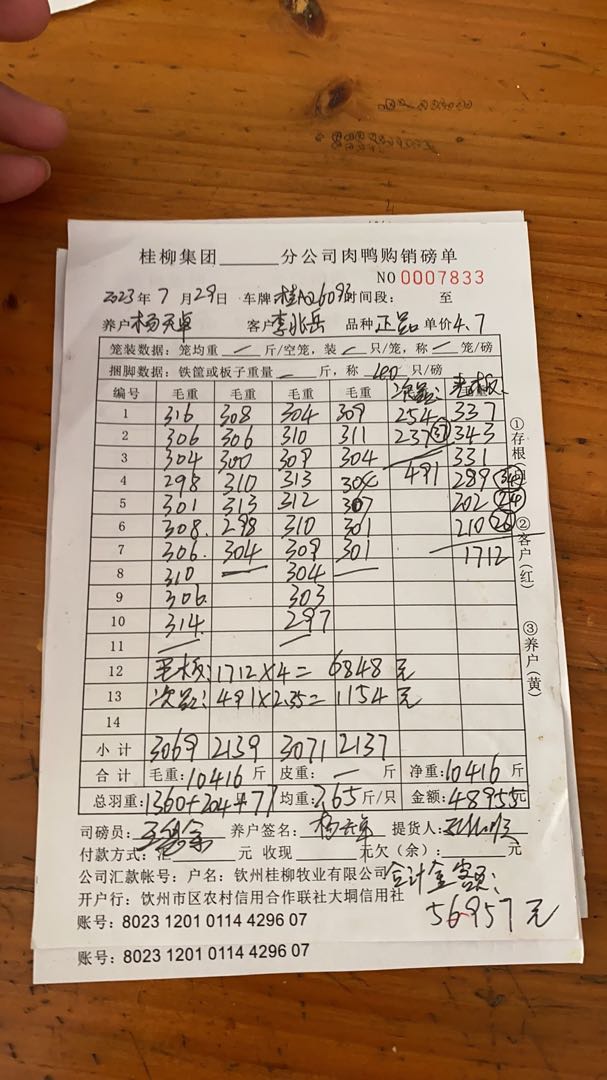 桂柳集团______分公司肉鸭购销磅单
NO 0007833
2023年 7 月29日 车牌 桂A26093时间段: 至
养户杨天卓 客户李兆岳 品种 正品 单价4.7
笼装数据: 笼均重 — 斤/空笼, 装 — 只/笼, 称 — 笼/磅
捆脚数据: 铁筐或板子重量 — 斤, 称 100 只/磅
编号 毛重 毛重 毛重 毛重 次品: 毛板
1 316 308 304 309 254 337
2 306 306 310 311 237 343
3 304 300 309 304 331
4 298 310 313 304 491 289 34
5 301 313 312 307 202 24
6 308. 298 310 301 210 26
7 306. 304 309 301 1712
8 310 — 304 —
9 306. 303
10 314. 297
11 — —
12 毛板: 1712×4= 6848 元
13 次品: 491×2.35= 1154 元
14
小计 3069 2139 3071 2137
合计 毛重: 10416 斤 皮重: — 斤 净重: 10416 斤
总羽重: 1360+204+77 均重: 7.65 斤/只 金额: 48955元
司磅员: 养户签名: 杨天卓 提货人:
付款方式: 汇 元 收现 元欠(余): 元
公司汇款帐号: 户名: 钦州桂柳牧业有限公司 合计金额:
开户行: 钦州市区农村信用合作联社大垌信用社
56957元
账号: 8023 1201 0114 4296 07
账号: 8023 1201 0114 4296 07
①存根(白)
②客户(红)
③养户(黄)